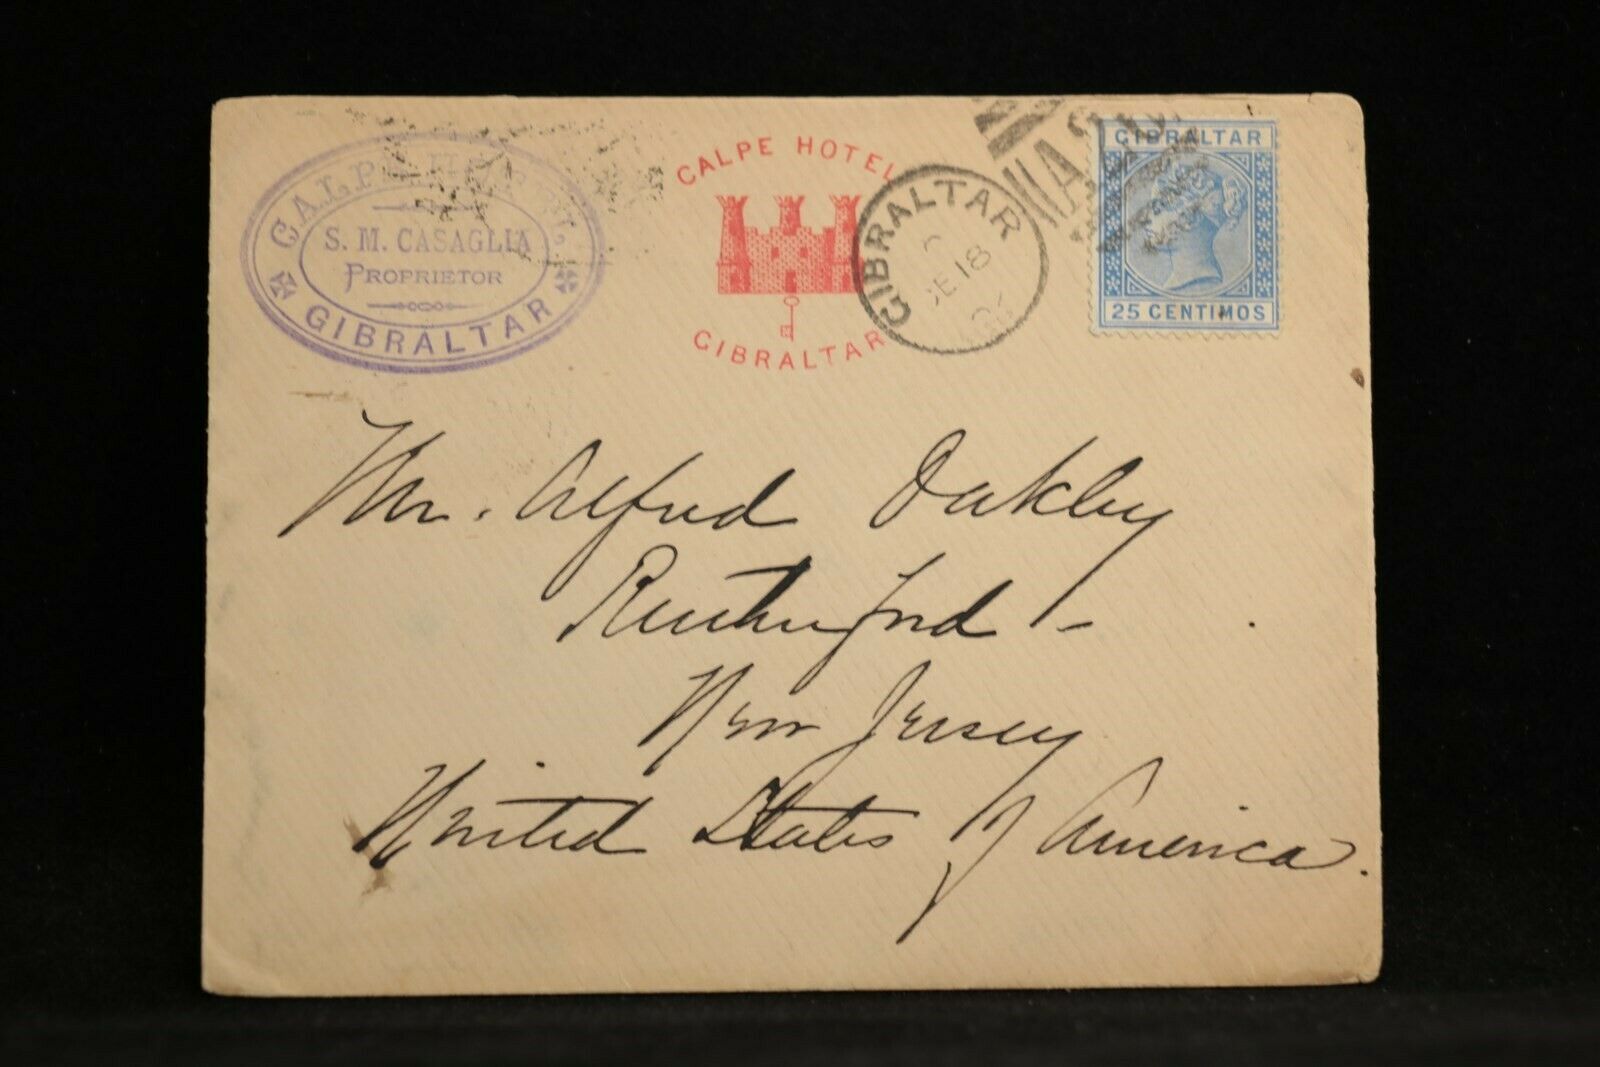 CALPE HOTEL
S. M. CASAGLIA
PROPRIETOR
GIBRALTAR
CALPE HOTEL
GIBRALTAR
GIBRALTAR
DE 18
A26
GIBRALTAR
25 CENTIMOS
Mr. Alfred Oakley
Rutherford -
New Jersey
United States of America.